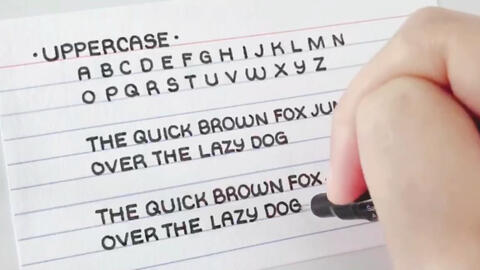 · UPPERCASE ·
A B C D E F G H I J K L M N
O P Q R S T U V W X Y Z
THE QUICK BROWN FOX
OVER THE LAZY DOG
THE QUICK BROWN FOX
OVER THE LAZY DOG